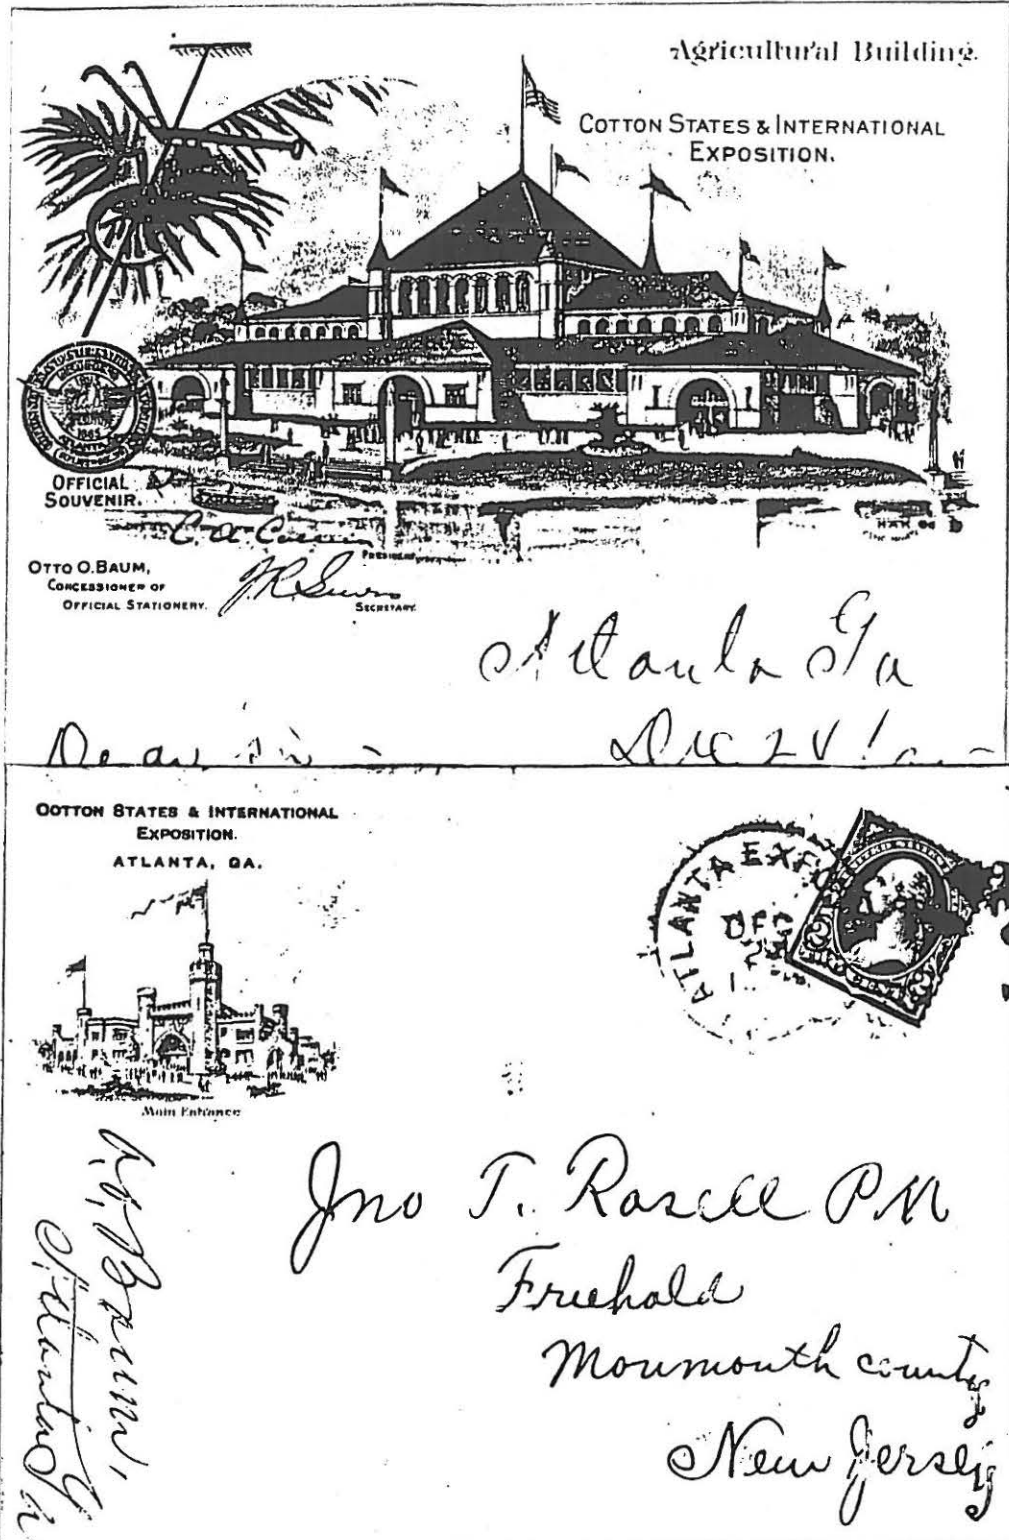 Agricultural Building.
COTTON STATES & INTERNATIONAL
EXPOSITION.
1895
OFFICIAL
SOUVENIR.
PRESIDENT
OTTO O. BAUM,
CONCESSIONER OF
OFFICIAL STATIONERY.
SECRETARY.
Atlanta Ga
Dear Sir - Dec 24
COTTON STATES & INTERNATIONAL
EXPOSITION.
ATLANTA, GA.
ATLANTA EXPO
DEC
2 TWO CENTS 2
Main Entrance
Jno T. Rosell PM
Freehold
Monmouth county
New Jersey
Atlanta Ga